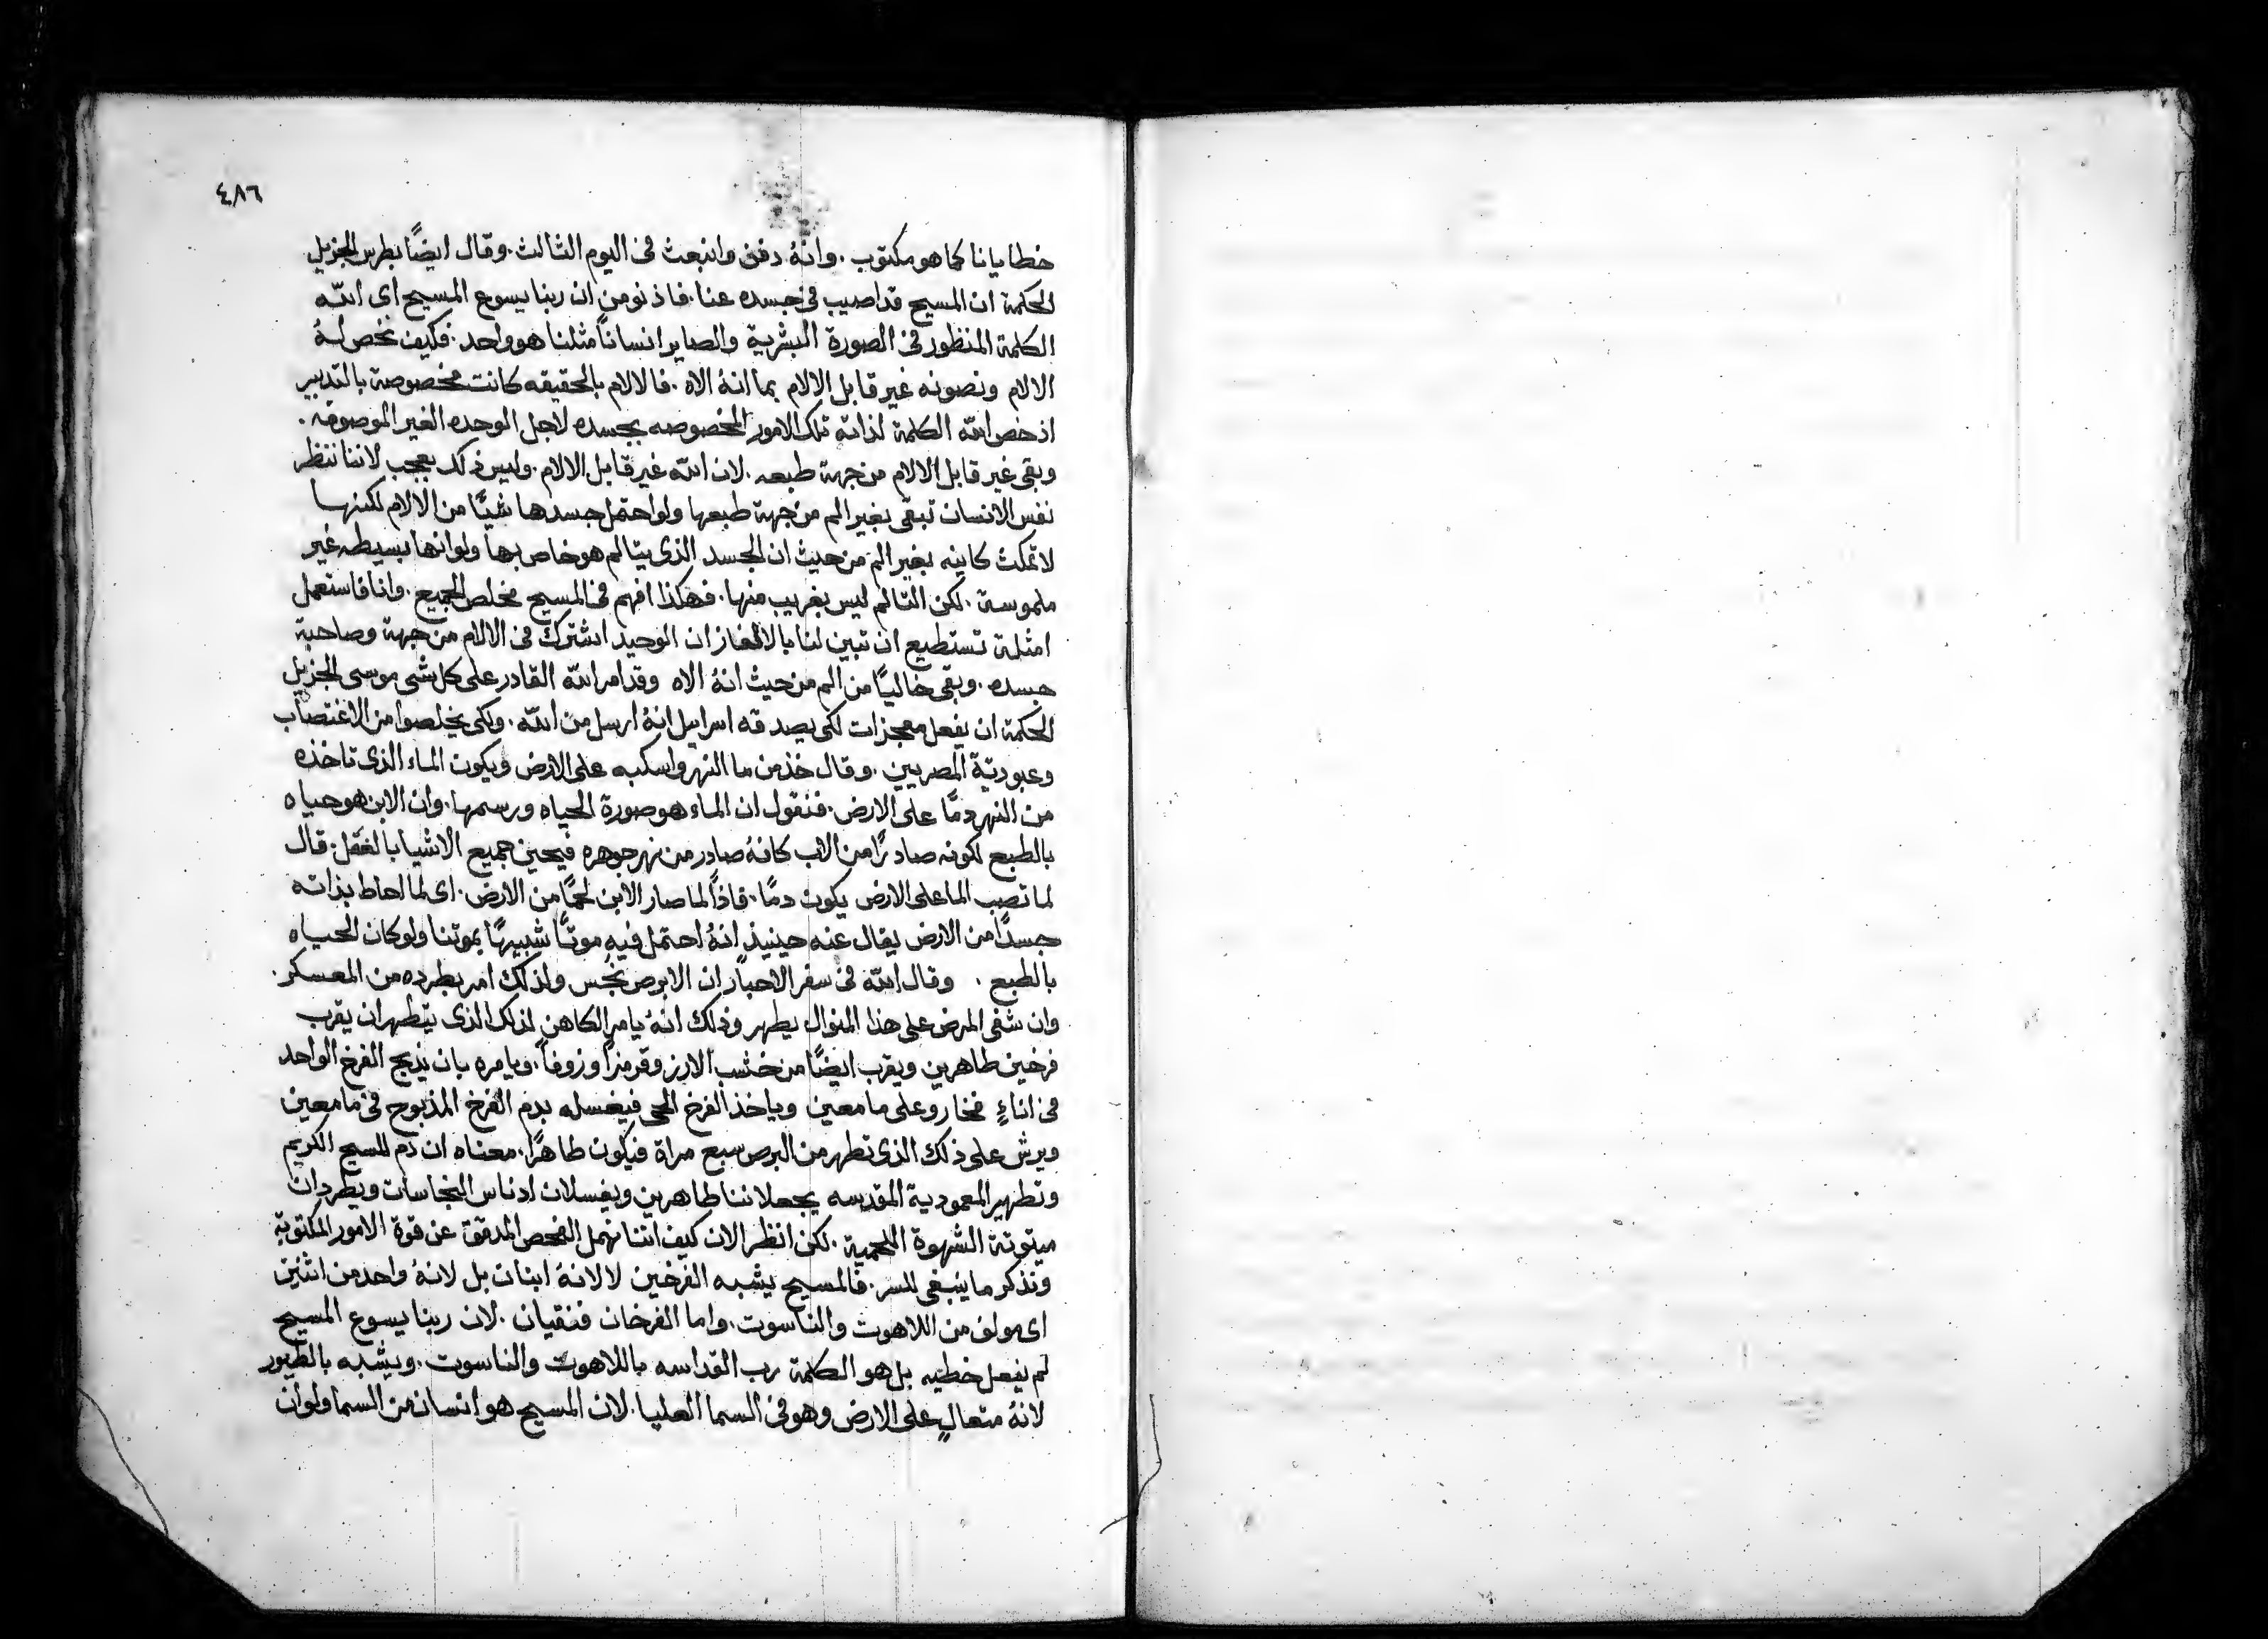 ٤٨٦
خطايانا كما هو مكتوب. وانهُ دفن وانبعث فى اليوم الثالث. وقال ايضًا بطرس الجزيل
الحكمة ان المسيح قد اصيب فى جسده عنا. فاذ نومن ان ربنا يسوع المسيح اى الله
الكلمة المنظور فى الصورة البشرية والصاير انسانًا مثلنا هو واحد. فكيف نخص لهُ
الالام ونصونه غير قابل الالام بما انهُ الاه. فالالام بالحقيقه كانت مخصوصة بالتدبير
اذ خص الله الكلمة لذاته تلك الامور المخصوصه بجسده لاجل الوحده الغير الموصوفه.
وبقى غير قابل الالام من جهة طبعه. لان الله غير قابل الالام. وليس ذلك بعجب لاننا ننظر
نفس الانسان تبقى بغير الم من جهة طبعها ولو احتمل جسدها شيًا من الالام لكنها
لا تمكث كاينه بغير الم من حيث ان الجسد الذى يتالم هو خاص بها ولو انها بسيطه غير
ملموسة. لكن التالم ليس بغريب منها. فهكذا افهم فى المسيح مخلص الجميع. وانا فاستعمل
امثلة تستطيع ان تبين لنا بالالغاز ان الوحيد اشترك فى الالام من جهة وصاحبة
جسده. وبقى خاليًا من الم من حيث انهُ الاه وقد امر الله القادر على كل شى موسى الجزيل
الحكمة ان يفعل معجزات لكى يصدقه اسراييل انهُ ارسل من الله. ولكى يخلصوا من الاغتصاب
وعبوديّة المصريين. وقال خذ من ما النهر واسكبه على الارض ويكون الماء الذى تاخذه
من النهر دمًا على الارض. فنقول ان الماء هو صورة الحياه ورسمها. وان الابن هو حياه
بالطبع لكونه صادرًا من الاب كانهُ صادر من نهر جوهره فيحيى جميع الاشيا بالفعل. قال
لما تصب الما على الارض يكون دمًا. فاذًا لما صار الابن لحمًا من الارض. اى لما احاط بذاته
جسدًا من الارض يقال عنه حينيذٍ انهُ احتمل فيه موتًا شبيهًا بموتنا ولو كان الحياه
بالطبع. وقال الله فى سفر الاحبار ان الابرص نجس ولذلك امر بطرده من المعسكر.
وان شفى المرض على هذا المنوال يطهر وذلك انهُ يامر الكاهن لذلك الذى يتطهر ان يقرب
فرخين طاهرين ويقرب ايضًا من خشب الارز وقرمزًا وزوفا. ويامره بان يذبح الفرخ الواحد
فى اناءٍ فخار وعلى ما معين وياخذ الفرخ الحى فيغسله بدم الفرخ المذبوح فى ما معين
ويرش على ذلك الذى تطهر من البرص سبع مراة فيكون طاهرًا. معناه ان دم المسيح الكريم
وتطهير المعمودية المقدسه يجعلاننا طاهرين ويغسلان ادناس النجاسات ويطردان
ميتوتة الشهوة اللحمية. لكن انظر الان كيف اننا نهمل الفحص المدقق عن قوة الامور المكتوبة
ونذكر ما ينبغى للسر. فالمسيح يشبه الفرخين لا لانهُ ابنان بل لانهُ واحد من اثنين
اى مولف من اللاهوت والناسوت. واما الفرخان فنقيان. لان ربنا يسوع المسيح
لم يفعل خطيه بل هو الكلمة رب القداسه باللاهوت والناسوت. ويشبه بالطيور
لانهُ متعالٍ على الارض وهو فى السما العليا. لان المسيح هو انسان من السما ولو ان